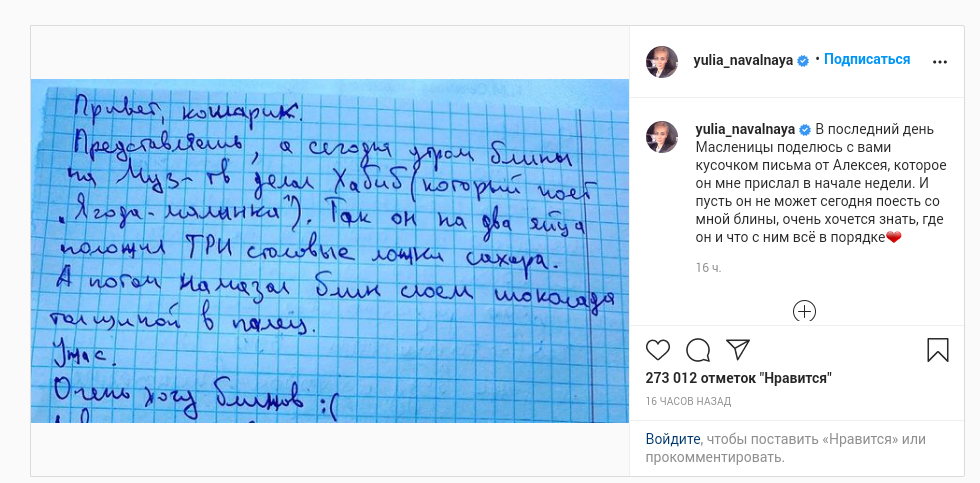 Привет, кошарик.
Представляешь, а сегодня утром блины
на Муз-тв делал Хабиб (который поет
„Ягода-малинка"). Так он на два яйца
положил ТРИ столовые ложки сахара.
А потом намазал блин слоем шоколада
толщиной в палец.
Ужас.
Очень хочу блинов :(
yulia_navalnaya • Подписаться
yulia_navalnaya В последний день
Масленицы поделюсь с вами
кусочком письма от Алексея, которое
он мне прислал в начале недели. И
пусть он не может сегодня поесть со
мной блины, очень хочется знать, где
он и что с ним всё в порядке❤️
16 ч.
273 012 отметок "Нравится"
16 ЧАСОВ НАЗАД
Войдите, чтобы поставить «Нравится» или
прокомментировать.